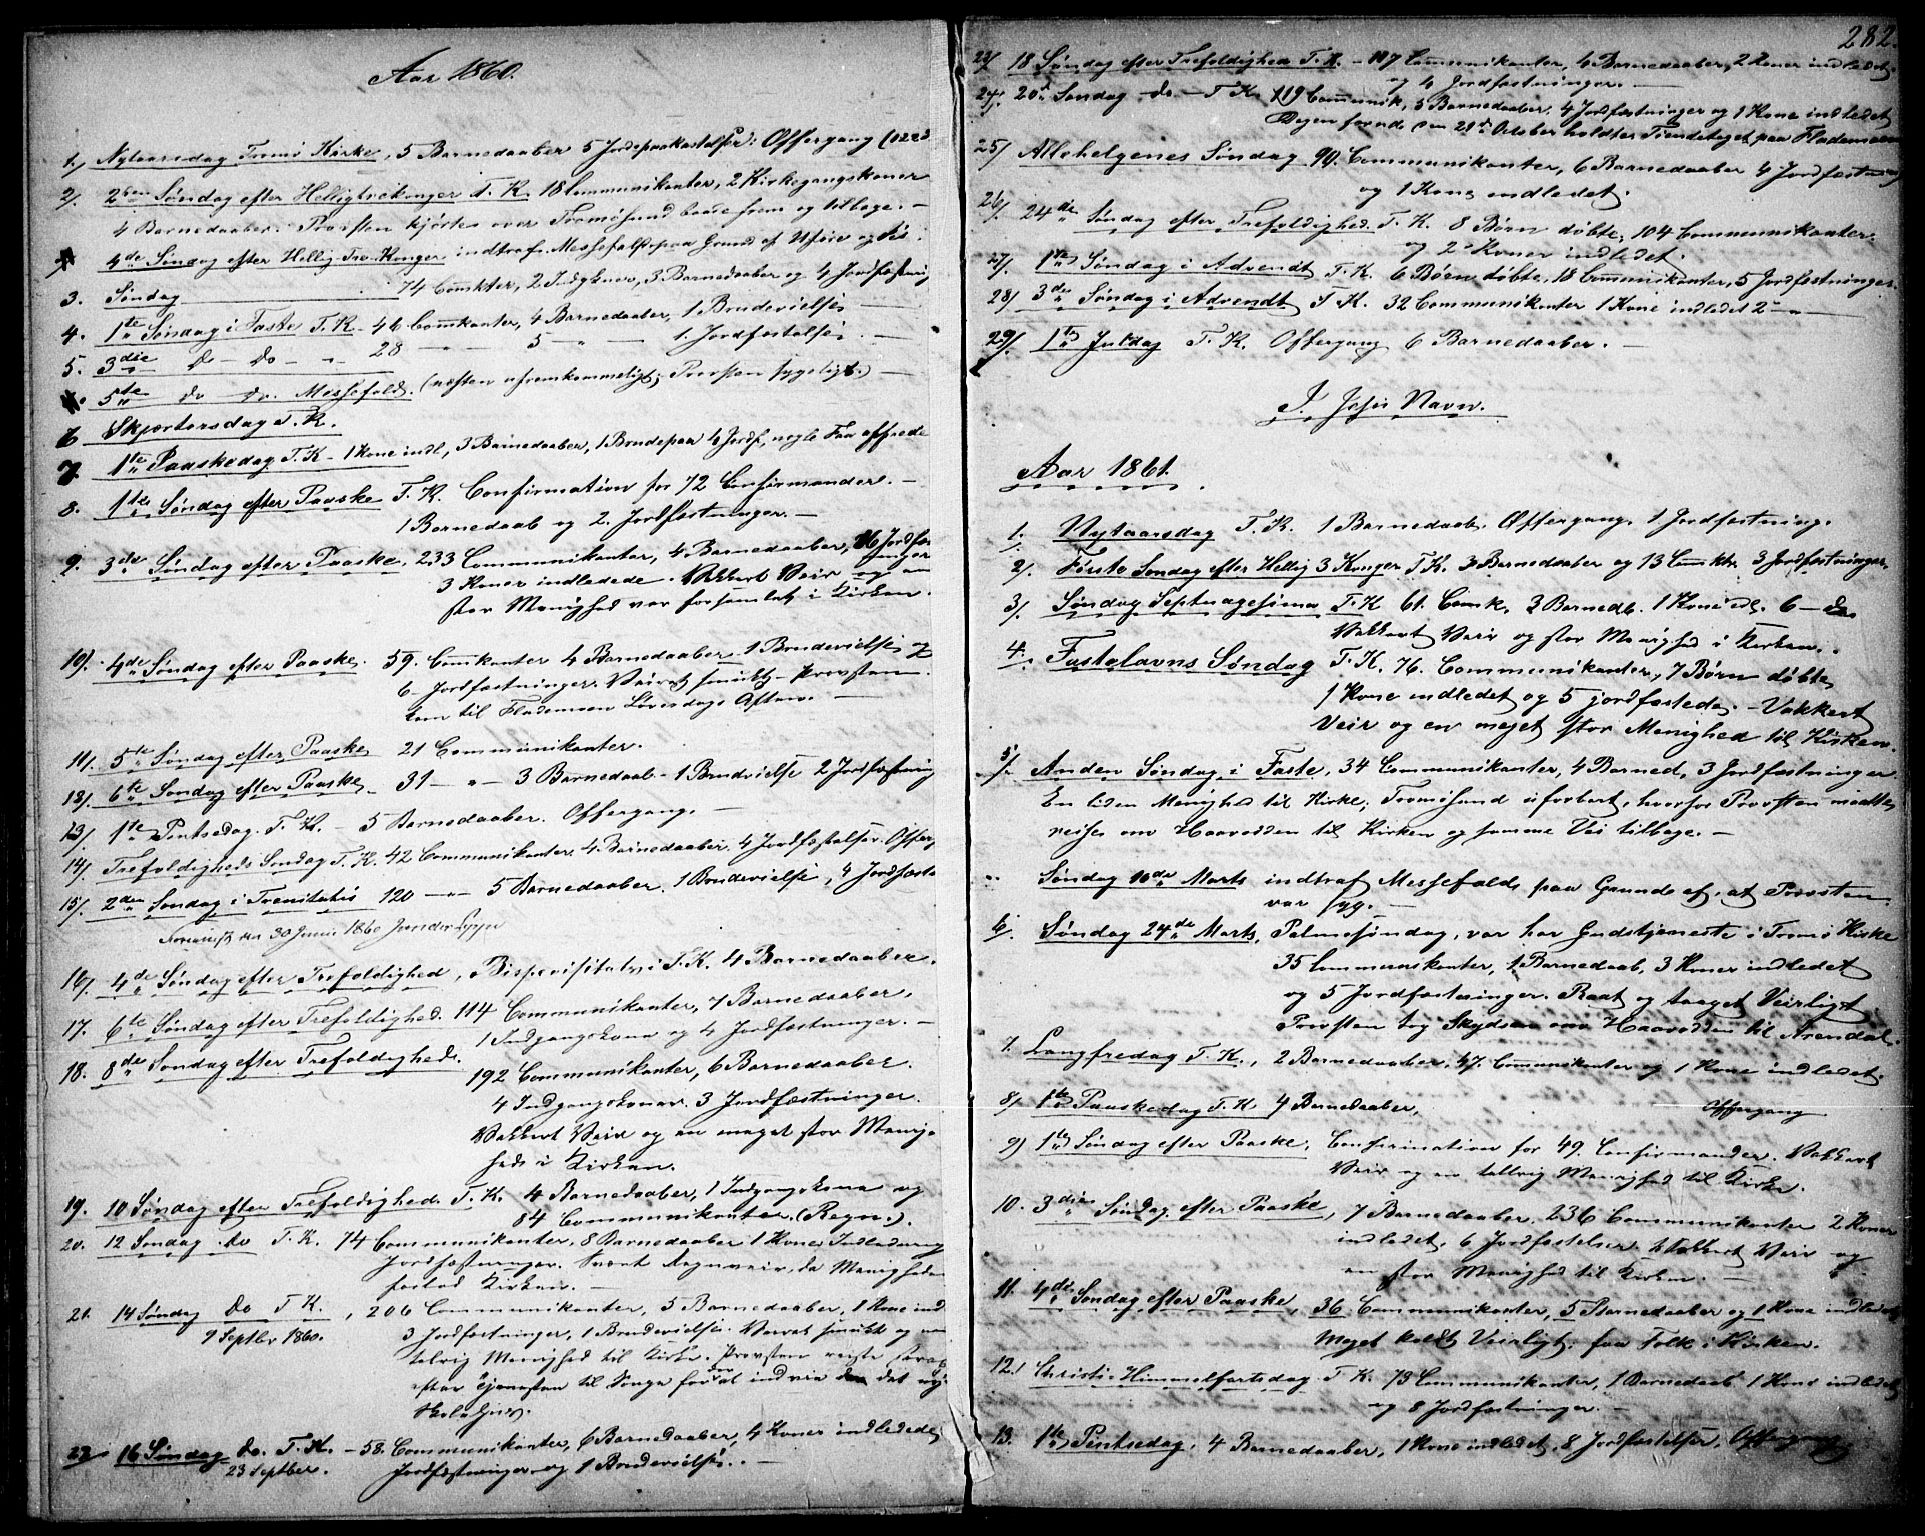 Aar 1860.
1.) Nytaarsdag Tromø Kirke, 5 Barnedaaber 5 Jordpaakastelser: Offergang
2/. 2den Søndag efter Helligtrekonger T. K. 18 Communikanter, 2 Kirkegangskoner
4 Barnedaaber. Provsten kjørte over Tromøsund baade frem og tilbage. –
4de Søndag efter Hellig Tre Konger indtraf Messefald paa Grund af Uføre og Iis
3. Søndag 74 Comkter, 2 Indgkner, 3 Barnedaaber og 4 Jordfæstnig
4. 1te Søndag i Faste T. K. 46 Comkanter, 4 Barnedaaber, 1 Brudevielse
5. 3die do – do – 28 – " – 5 – " – 1. Jordfæstelse. –
5te do do. Messefald. (næsten ufremkommeligt; Provsten sygeligt.) –
6 Skjærtorsdag T. K.
7. 1te Paaskedag T. K – 1 Kone indl, 3 Barnedaaber, 1 Brudepar 4 Jordf, nogle Faa offrede
8. 1te Søndag efter Paaske T. K. Confirmation for 72 Confirmander. –
1 Barnedaab og 2. Jordfæstninger. –
9. 3die Søndag efter Paaske. 233 Communikanter, 4 Barnedaaber, 6 Jordfæstninger
3 Koner indledede. Vakkert Veir og en
stor Menighed var forsamlet i Kirken.
10). 4de Søndag efter Paaske. 59. Comkanter 4 Barnedaaber 1 Brudevielse og
6 Jordfæstninger. Veiret smukt – Provsten
kom til Fladmoen Løverdags Aften. –
11/. 5te Søndag efter Paaske 21 Communikanter.
12/. 6te Søndag efter Paaske – 31 – " – 3 Barnedaab – 1 Brudvielse 2 Jordfæstning
13/. 1te Pintsedag. T. K. – 5 Barnedaaber. Offergang. –
14/. Trefoldigheds Søndag T. K. 42 Communikanter. 4 Barnedaaber. 4 Jordfæstelser. Offerg
15/. 2den Søndag i Trenitatis 120 – " – 5 Barnedaaber. 1 Brudevielse, 4 Jordfæste
30 Juni 1860
16/. 4de Søndag efter Trefoldighed, Bispevisitats i T. K. 4 Barnedaaber.
17. 6te Søndag efter Trefoldighed. 114 Communikanter, 7 Barnedaaber,
1 Indgangskone og 4 Jordfæstninger. –
18. 8de Søndag efter Trefoldighed.
192 Communikanter, 6 Barnedaaber
4 Indgangskoner. 3 Jordfæstninger.
Vakkert Veir og en meget stor Menig-
hed i Kirken.
19. 10 Søndag efter Trefoldighed. T. K. 4 Barnedaaber, 1 Indgangskone og
84 Communikanter. (Regn.).
20. 12 Søndag do T. K. 74 Communikanter, 8 Barnedaaber 1 Kones Indledning
Jordfæstninger. Svært Regnveir, da Menigheden
forlod Kirken. –
21. 14 Søndag do T K., 206 Communikanter, 5 Barnedaaber, 1 Kone ind
9 Septbr 1860. 3 Jordfæstninger, 1 Brudevielse. Veiret smukt og en
talrig Menighed til Kirke. Provsten reiste strax
efter Tjenesten til Songe for at indvie det nye
Skolehuus.
22 16 Søndag do. T. K. – 58. Communikanter, 6 Barnedaaber, 4 Koner indledede
23 Septber. Jordfæstninger og 1 Brudevielse. –
282.
23/ 18 Søndag efter Trefoldighed T. K. – 117 Communikanter, 4 Barnedaaber, 2 Koner indledet
og 4 Jordfæstninger. –
24/. 20de Søndag do – T K. 119 Communik, 5 Barnedaaber. 4 Jordfæstninger og 1 Kone indledet
Dagen forud den 28de October holdtes Tiendetaget paa Fladmoen
25/ Allehelgenes Søndag 90. Communikanter, 6 Barnedaaber 4 Jordfæstning
og 1 Kone indledet.
26/. 24de Søndag efter Trefoldighed. T. K. 8 Børn døbte, 104 Communikanter.
og 2 Koner indledet.
27/. 1te Søndag i Advendt T. K. 6 Børn døbte, 18 Communikanter, 5 Jordfæstninger.
28/ 3die Søndag i Advendt T. K. 32 Communikanter 1 Kone indledet 2 – " –
29/. 1te Juledag T. K. Offergang 6 Barnedaaber. –
I Jesu Navn.
Aar 1861.
1. Nytaarsdag T. K. 1 Barnedaab. Offergang. 1 Jordfæstning.
2/. Første Søndag efter Hellig 3 Konger T. K. 3 Barnedaaber og 13 Comktr. 3 Jordfæstninger.
3/. Søndag Septuagesima T. K 61. Comk, 3 Barnedb. 1 Kone idl. 6 – do
Vakkert Veir og stor Menighed i Kirken.
4. Fastelavns Søndag T. K. 76. Communikanter, 7 Børn døbte,
1 Kone indledet og 5 jordfæstede. – Vakkert
Veir og en meget stor Menighed til Kirken.
5/. Anden Søndag i Faste, 34 Communikanter, 4 Barned, 3 Jordfæstninger
En liden Menighed til Kirke; Tromøsund ufarbart, hvorfor Provsten maatte
reise om Haavodden til Kirken og samme Vei tilbage. –
Søndag 10de Marts indtraf Messefald paa Grund af, at Provsten
var syg. –
6. Søndag 24de Marts, Palmesøndag, var her Gudstjeneste i Tromø Kirke
35 Communikanter, 1 Barnedaab, 3 Koner indledet
og 5 Jordfæstninger. Raat og taaget Veirligt
Provsten tog Skydsen om Haavodden til Arendal.
7. Langfredag T. K., 2 Barnedaaber, 47. Communikanter og 1 Kone indledet.
8/. 1te Paaskedag T. K 4 Barnedaaber, Offergang
9) 1te Søndag efter Paaske, Confirmation for 49. Confirmander. Vakkert
Veir og en talrig Menighed til Kirke.
10. 3die Søndag efter Paaske, 7 Barnedaaber. 236 Communikanter 2 Koner
indledet, 6 Jordfæstelser. Vakkert Veir og
en stor Menighed til Kirken. –
11. 4die Søndag efter Paaske, 36 Communikanter, 5 Barnedaaber og 1 Kone indledet
Meget koldt Veirligt. faa Folk i Kirken.
12/ Christi Himmelfartsdag T. K. 73 Communikanter, 1 Barnedaab 1 Kone indledet
og 8 Jordfæstninger. –
13. 1te Pintsedag, 4 Barnedaaber, 1 Kone indledet, 8 Jordfæstelser, Offergang